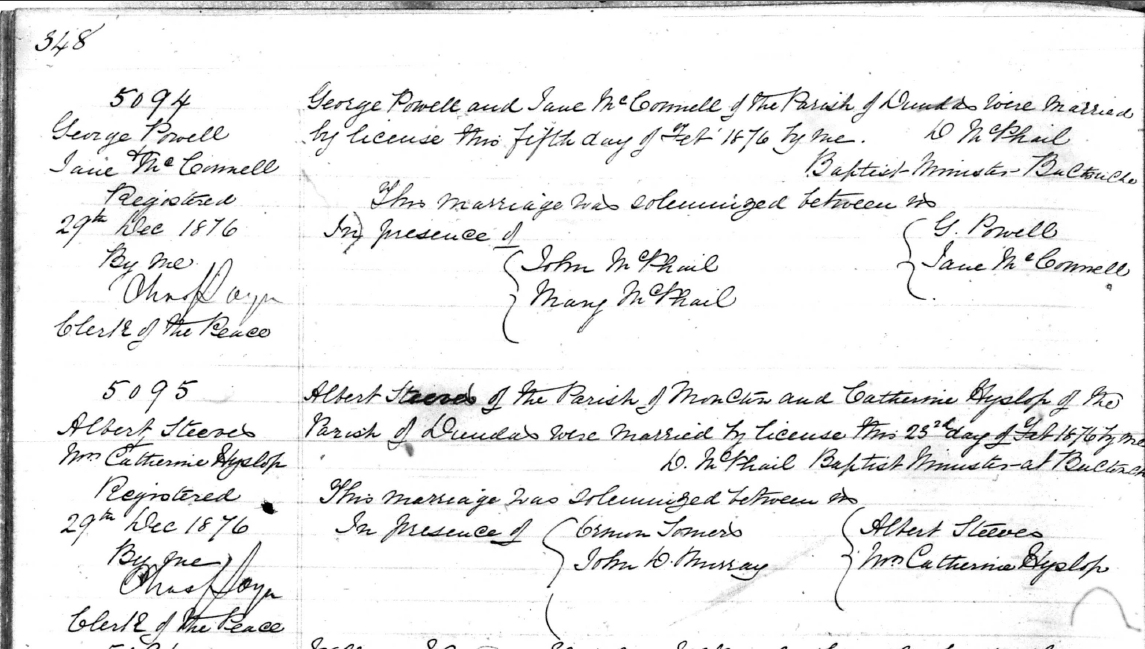 348
5094
George Powell
Jane McConnell
Registered
29th Dec 1876
By me
Clerk of the Peace
George Powell and Jane McConnell of the Parish of Dundas were married
by license this fifth day of Feb 1876 by me. D McPhail
Baptist Minister - Buctouche
This marriage was solemnized between us
In presence of
John McPhail
Mary McPhail
G. Powell
Jane McConnell
5095
Albert Steeves
Mrs Catherine Hyslop
Registered
29th Dec 1876
By me
Clerk of the Peace
Albert Steeves of the Parish of Moncton and Catherine Hyslop of the
Parish of Dundas were married by license this 23rd day of Feb 1876 by me
D. McPhail Baptist Minister at
This marriage was solemnized between us
In presence of
Somers
John D. Murray
Albert Steeves
Mrs Catherine Hyslop